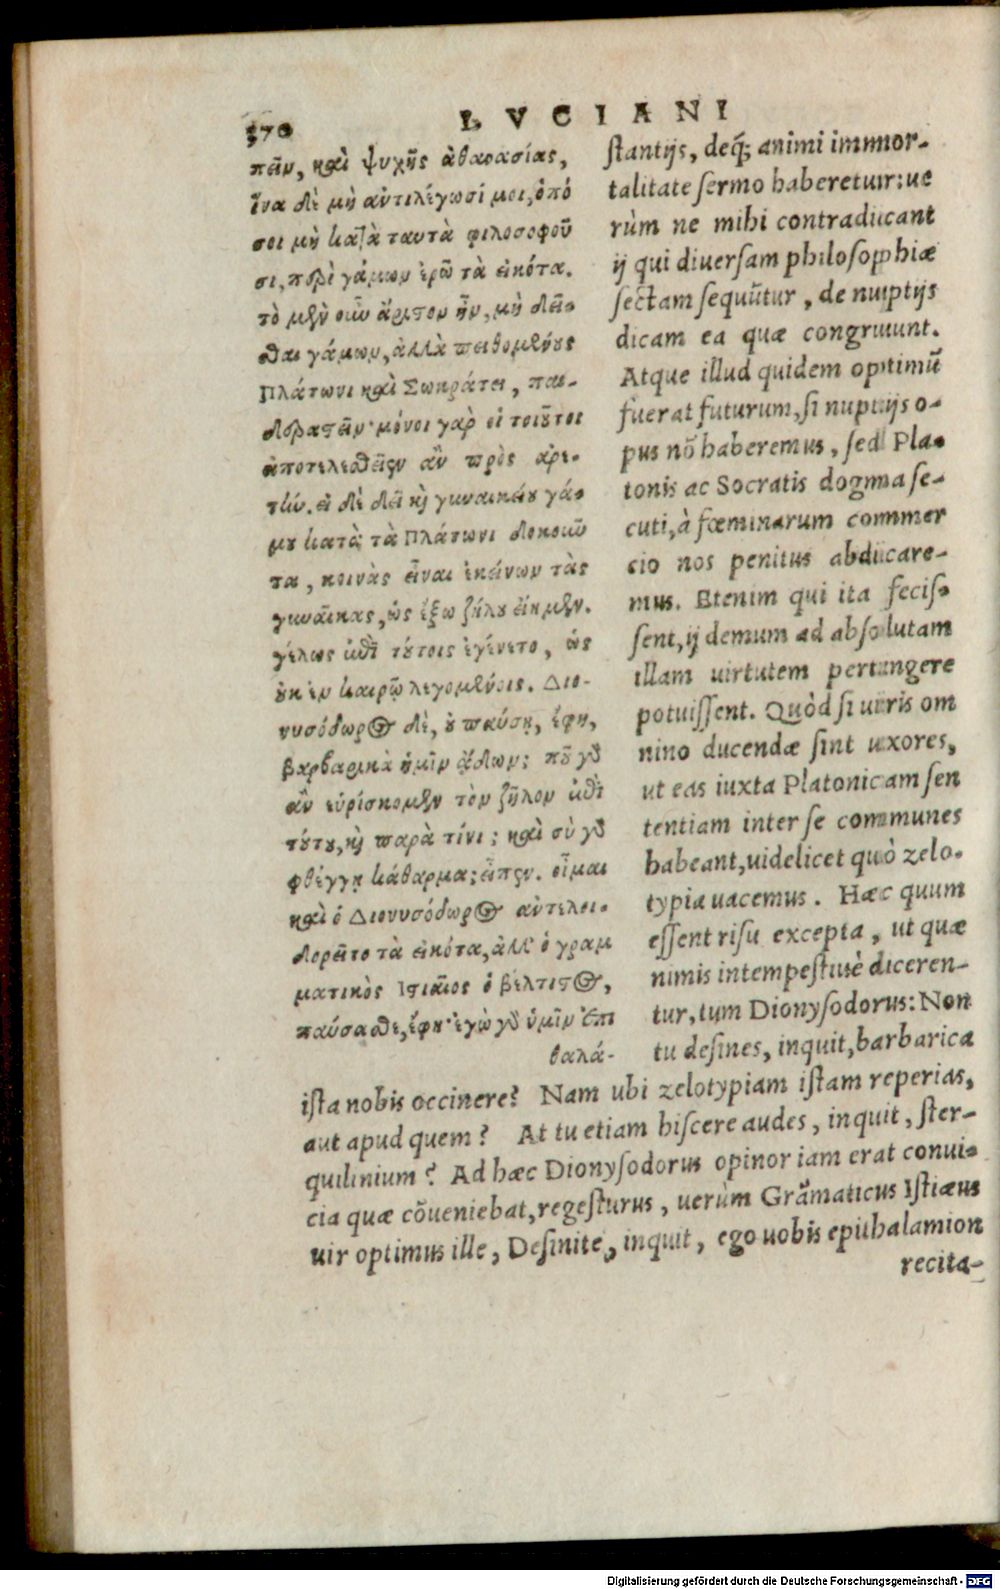 370
LVCIANI
πεῖν, καὶ ψυχῆς ἀθανασίας,
ἵνα δὲ μὴ ἀντιλέγωσί μοι, ὁπό
σοι μὴ κατὰ ταυτὰ φιλοσοφοῦ
σι, περὶ γάμων ἐρῶ τὰ εἰκότα.
τὸ μὲν οὖν ἄριστον ἦν, μὴ δεῖ-
σθαι γάμων, ἀλλὰ πειθομένους
Πλάτωνι καὶ Σωκράτει, παι-
δεραστεῖν· μόνοι γὰρ οἱ τοιοῦτοι
ἀποτελεσθεῖεν ἂν πρὸς ἀρε-
τήν. εἰ δὲ δεῖ καὶ γυναικείου γά-
μου κατὰ τὰ Πλάτωνι δοκοῦν
τα, κοινὰς εἶναι ἐκείνων τὰς
γυναῖκας, ὡς ἔξω ζήλου εἴημεν.
γέλως ἐπὶ τούτοις ἐγένετο, ὡς
οὐκ ἐν καιρῷ λεγομένοις. Διο-
νυσόδωρος δὲ, οὐ παύσῃ, ἔφη,
βαρβαρικὰ ἡμῖν ᾄδων; ποῦ γὸ
ἂν εὑρίσκομεν τὸν ζῆλον ἐπὶ
τούτου, καὶ παρὰ τίνι; καὶ σὺ γὸ
φθέγγῃ κάθαρμα; εἶπεν. οἶμαι
καὶ ὁ Διονυσόδωρος ἀντελοι-
δορεῖτο τὰ εἰκότα, ἀλλ' ὁ γραμ
ματικὸς Ιστιαῖος ὁ βέλτιστος,
παύσασθε, ἔφη· ἐγὼ γὸ ὑμῖν ἐπι
θαλά-
stantijs, deq; animi immor-
talitate sermo haberetur: ue
rùm ne mihi contradicant
ij qui diuersam philosophiæ
sectam sequūtur, de nuptijs
dicam ea quæ congruunt.
Atque illud quidem optimũ
fuerat futurum, si nuptijs o-
pus nō haberemus, sed Pla-
tonis ac Socratis dogma se-
cuti, à fœminarum commer
cio nos penitus abdicare-
mus. Etenim qui ita fecis-
sent, ij demum ad absolutam
illam uirtutem pertingere
potuissent. Quòd si uiris om
nino ducendæ sint uxores,
ut eas iuxta Platonicam sen
tentiam inter se communes
habeant, uidelicet quò zelo-
typia uacemus. Hæc quum
essent risu excepta, ut quæ
nimis intempestiuè diceren-
tur, tum Dionysodorus: Non
tu desines, inquit, barbarica
ista nobis occinere? Nam ubi zelotypiam istam reperias,
aut apud quem? At tu etiam hiscere audes, inquit, ster-
quilinium? Ad hæc Dionysodorus opinor iam erat conui-
cia quæ cōueniebat, regesturus, uerùm Grāmaticus Istiæus
uir optimus ille, Desinite, inquit, ego uobis epithalamion
recita-
Digitalisierung gefördert durch die Deutsche Forschungsgemeinschaft - DFG